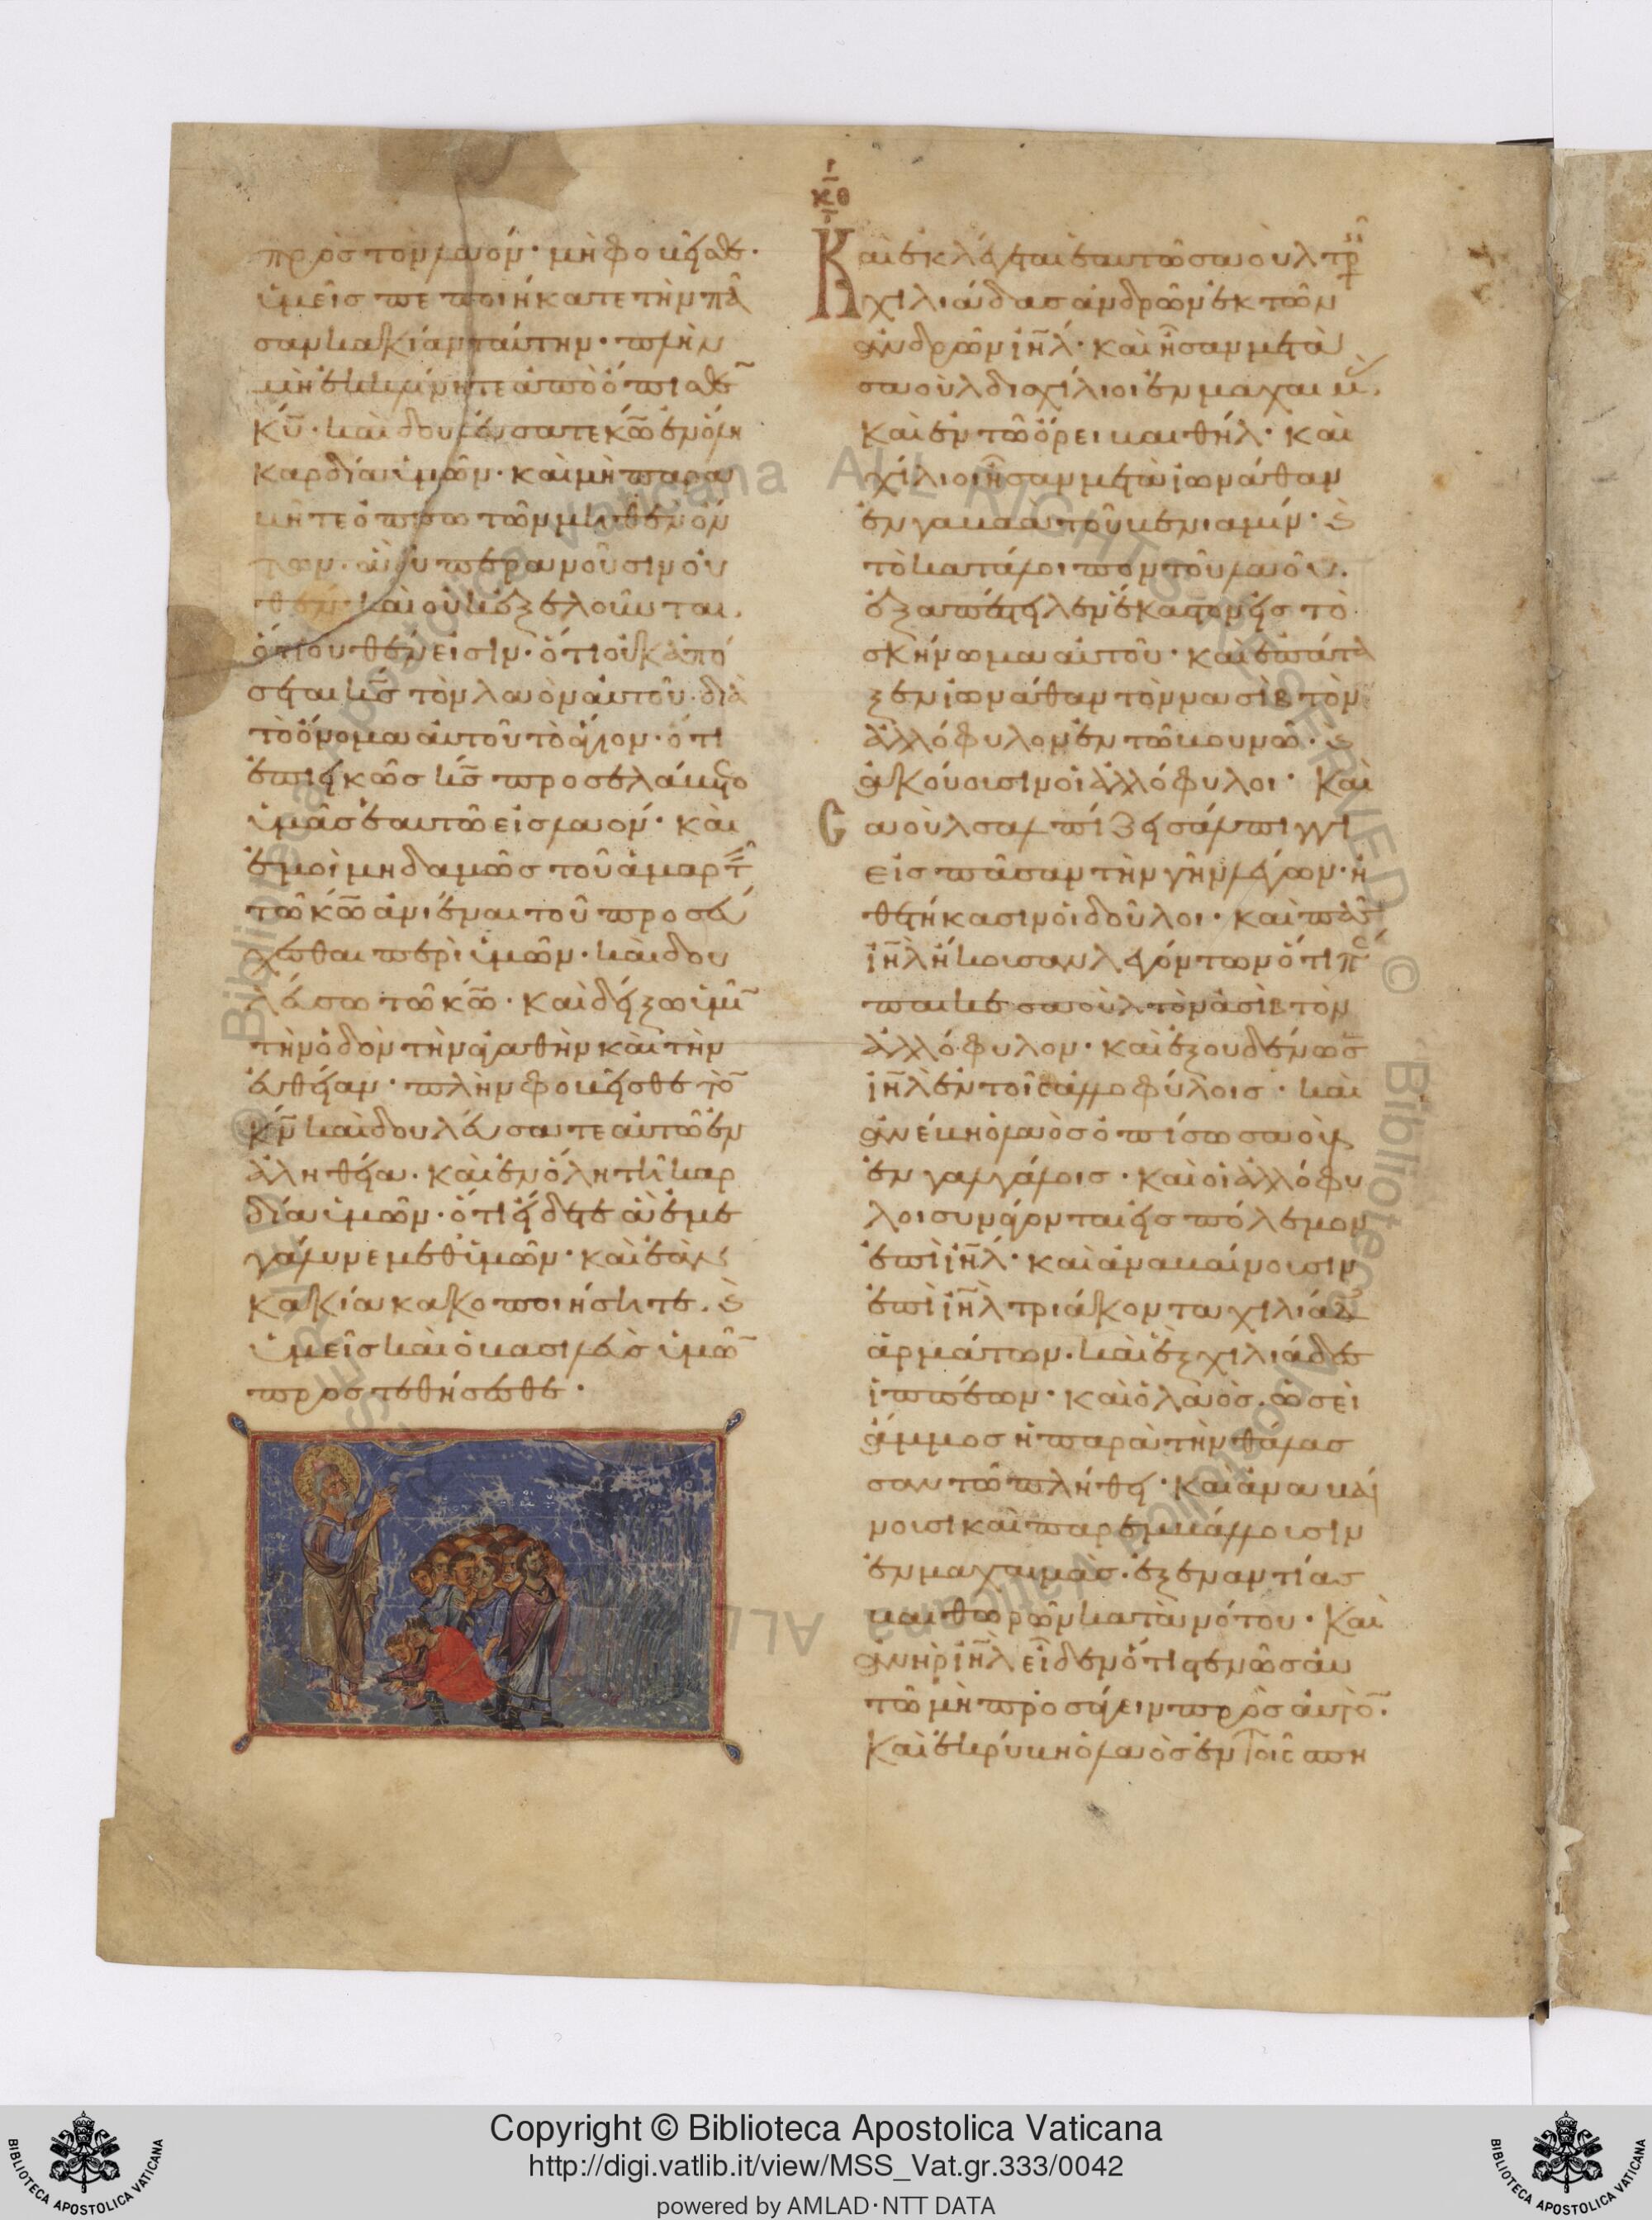 προσ τὸν λαόν· μὴ φοβεῖσθε·
ὑμεῖσ πεποιήκατε τὴν πᾶ
σαν κακίαν ταύτην· πλὴν
μὴ ἐκκλίνητε ἀπὸ ὄπισθε
κ̅υ̅· καὶ δουλεύσατε κ̅ω̅ ἐν ὅλη
καρδία ὑμῶν· καὶ μὴ παρα
βῆτε ὀπίσω τῶν μηθὲν ὄν
των· οἳ οὐ περανοῦσιν οὐ
θέν· καὶ οὐκ ἐξελοῦνται·
ὅτι ουθέν εἰσιν· ὅτι οὐκ ἀπώ
σεται κ̅σ̅ τὸν λαὸν αὐτοῦ διὰ
τὸ ὄνομα αὐτοῦ τὸ ἅγιον· ὅτι
ἐπιεικῶσ κ̅σ̅ προσελάβετο
ὑμᾶσ ἑαυτῶ εἰσ λαόν· καὶ
ἐμοὶ μηδαμῶσ τοῦ ἁμαρτ
τῶ κ̅ω̅ ἀνιέναι τοῦ προσεύ
χεσθαι περὶ ὑμῶν· καὶ δου
λεύσω τῶ κ̅ω̅· καὶ δείξω ὑμῖ
τὴν ὁδὸν τὴν ἀγαθὴν καὶ τὴν
εὐθεῖαν· πλὴν φοβεῖσθε τὸ
κ̅ν̅ καὶ δουλεύσατε αὐτῶ ἐν
ἀληθεία· καὶ ἐν ὅλη τῆ καρ
δία ὑμῶν· ὅτι εἴδετε ἃ ἐμε
γάλυνε μεθ' ὑμῶν· καὶ ἐὰν
κακία κακοποιήσητε· ϗ
ὑμεῖσ καὶ ὁ βασιλεὺσ ὑμῶ
προστεθήσεσθε·
κ̅θ̅
Καὶ ἐκλέγεται ἑαυτῶ σαοὺλ τρ
χιλιάδασ ἀνδρῶν ἐκ τῶν
ἀνδρῶν ι̅η̅λ̅· καὶ ἦσαν μετὰ
σαοὺλ δισχίλιοι ἐν μαχαι
καὶ ἐν τῶ ὄρει βαιθήλ· καὶ
χίλιοι ἦσαν μετὰ ἰωνάθαν
ἐν γαβαὰ τοῦ βενιαμίν· ϗ
τὸ κατάλοιπον τοῦ λαοῦ
ἐξαπέστειλεν ἕκαστον εἰσ τὸ
σκήνωμα αὐτοῦ· καὶ ἐπάτα
ξεν ἰωνάθαν τὸν νασὶβ τὸν
ἀλλόφυλον ἐν τῶ βουνῶ· ϗ
ἀκούουσιν οἱ ἀλλόφυλοι· Καὶ
Σαοὺλ σαλπίζει σάλπιγγι
εἰσ πᾶσαν τὴν γῆν λέγων· ἠ
θετήκασιν οἱ δοῦλοι· καὶ πᾶσ
ι̅η̅λ̅ ἤκουσαν λεγόντων ὅτι πέ
παικε σαοὺλ τὸν ἀσὶβ τὸν
ἀλλόφυλον· καὶ ἐξουδένωσ
ι̅η̅λ̅ ἐν τοῖσ ἀλλοφύλοισ· καὶ
ἀνέβη ὁ λαὸσ ὀπίσω σαοὺλ
ἐν γαλγάλοισ· καὶ οἱ ἀλλόφυ
λοι συνάγονται εἰσ πόλεμον
ἐπὶ ι̅η̅λ̅· καὶ ἀναβαίνουσιν
ἐπὶ ι̅η̅λ̅ τριάκοντα χιλιάδ
ἁρμάτων· καὶ ἓξ χιλιάδεσ
ἱππέων· καὶ ὁ λαὸσ· ὡσεὶ
ἄμμοσ ἡ παρὰ τὴν θάλασ
σαν τῶ πλήθει· Καὶ ἀναβαί
νουσι καὶ παρεμβάλλουσιν
ἐν μαχαιμὰσ· ἐξ ἐναντίασ
βαιθωρῶν κατὰ νότου· Καὶ
ἀνὴρ ι̅η̅λ̅ εἶδεν ὅτι στενῶσ αὐ
τῶ μὴ προσάγειν πρὸσ αὐτὸ·
Καὶ ἐκρύβη ὁ λαὸσ ἐν τοῖσ σπη
Copyright © Biblioteca Apostolica Vaticana
http://digi.vatlib.it/view/MSS_Vat.gr.333/0042
powered by AMLAD·NTT DATA
BIBLIOTECA APOSTOLICA VATICANA
BIBLIOTECA APOSTOLICA VATICANA